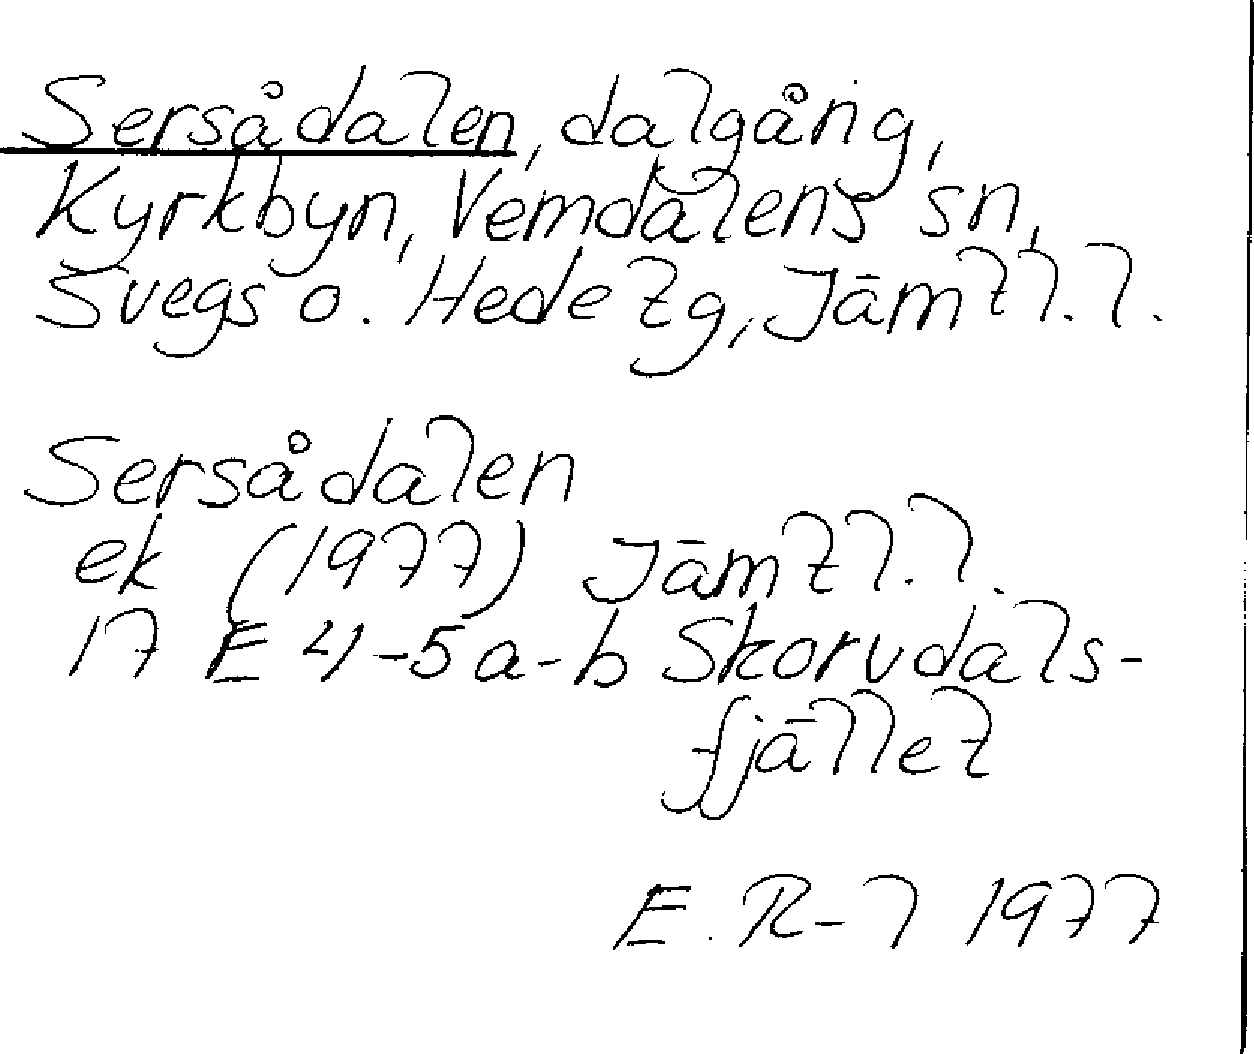 Sersådalen, dalgång,
Kyrkbyn, Vemdalens sn,
Svegs o. Hede tg, Jämtl. l.
Sersådalen
ek (1977) Jämtl. l.
17 E 4-5 a-b Skorvdals-
fjället
E. R-l 1977